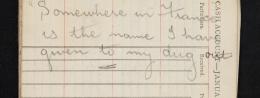 "Somewhere in France"
is the name I have
given to my dug-out
CASH ACCOUNT—JANUA
Received.